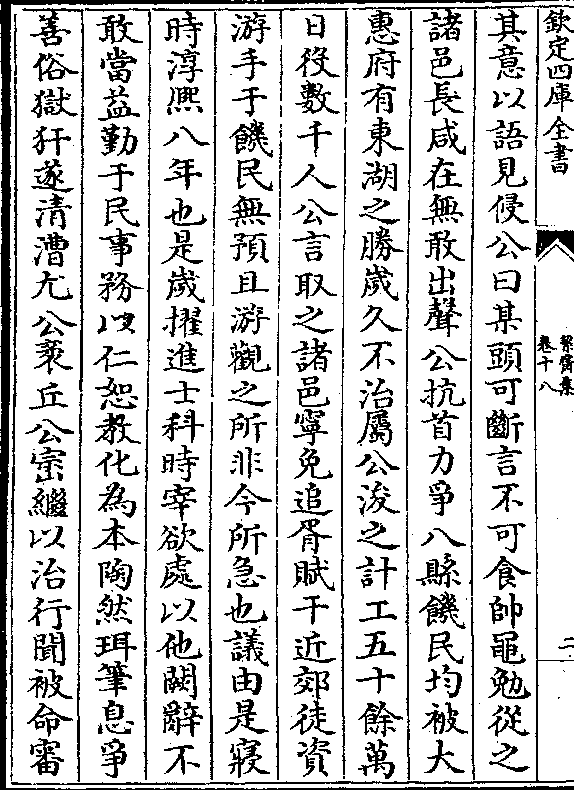 欽定四庫全書
絜齋集
卷十八
二
其意以語見侵公曰某頭可斷言不可食帥黽勉從之
諸邑長咸在無敢出聲公抗首力爭八縣饑民均被大
惠府有東湖之勝歲久不治屬公浚之計工五十餘萬
日役數千人公言取之諸邑寧免追胥賦于近郊徒資
游手于饑民無預且游觀之所非今所急也議由是寢
時淳熈八年也是歲擢進士科時宰欲處以他闕辭不
敢當益勤于民事務以仁恕教化為本陶然珥筆息爭
善俗獄犴遂清漕尤公袤丘公崈繼以治行聞被命審